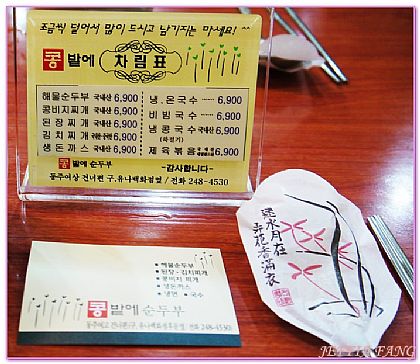 조금씩 덜어서 많이 드시고 남기지는 마세요! ^^
콩밭에 차림표
해물순두부 국내산 6,900
콩비지찌개 국내산 6,900
된장찌개 국내산 6,900
김치찌개 6,900
생돈까스 국내산 6,900
냉.온국수 6,900
비빔국수 6,900
냉콩국수 국내산 6,900
(하절기)
제육볶음 6,900
콩밭에순두부 -감사합니다-
동주여상 건너편 구.유나백화점옆 / 전화 248-4530
掬水月在
弄花香滿衣
• 해물순두부
• 된장 · 김치찌개
• 콩비지 찌개
• 생돈까스
• 냉면 • 국수
콩밭에순두부
248-4530
JETTIE FANG